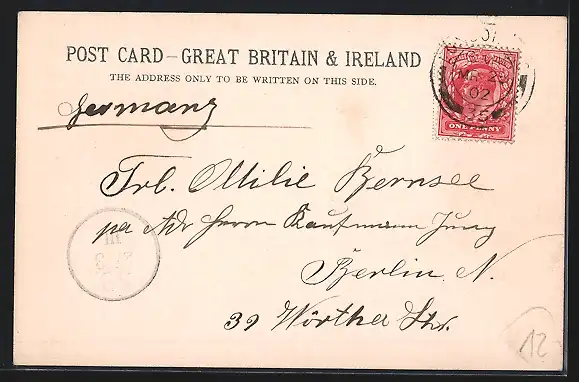 POST CARD – GREAT BRITAIN & IRELAND
THE ADDRESS ONLY TO BE WRITTEN ON THIS SIDE.
Germany
02
ONE PENNY
Frl. Ottilie Bernsee
pa Adr Herrn Kaufmann Jung
Berlin N.
39 Wörther Str.
12